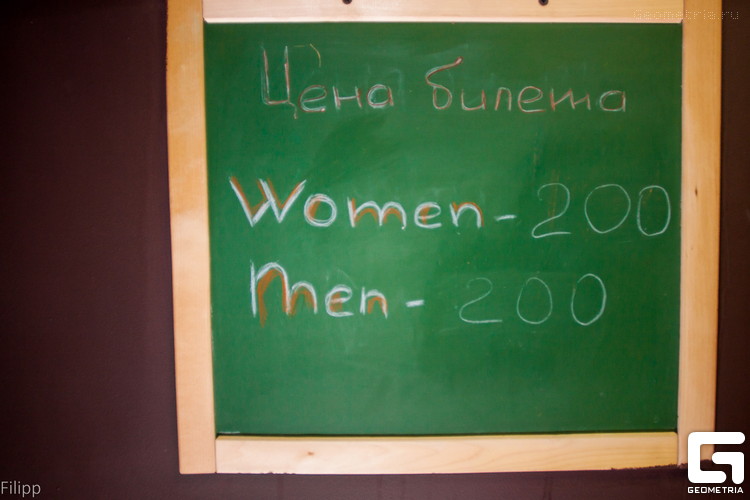 Geometria.ru
Цена билета
Women - 200
Men - 200
Filipp
GEOMETRIA